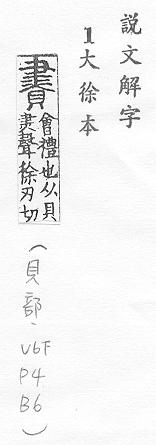 說文解字
1大徐本
𧶜
會禮也从貝
𦘔聲徐刃切
(貝部、V6F
P4
B6)